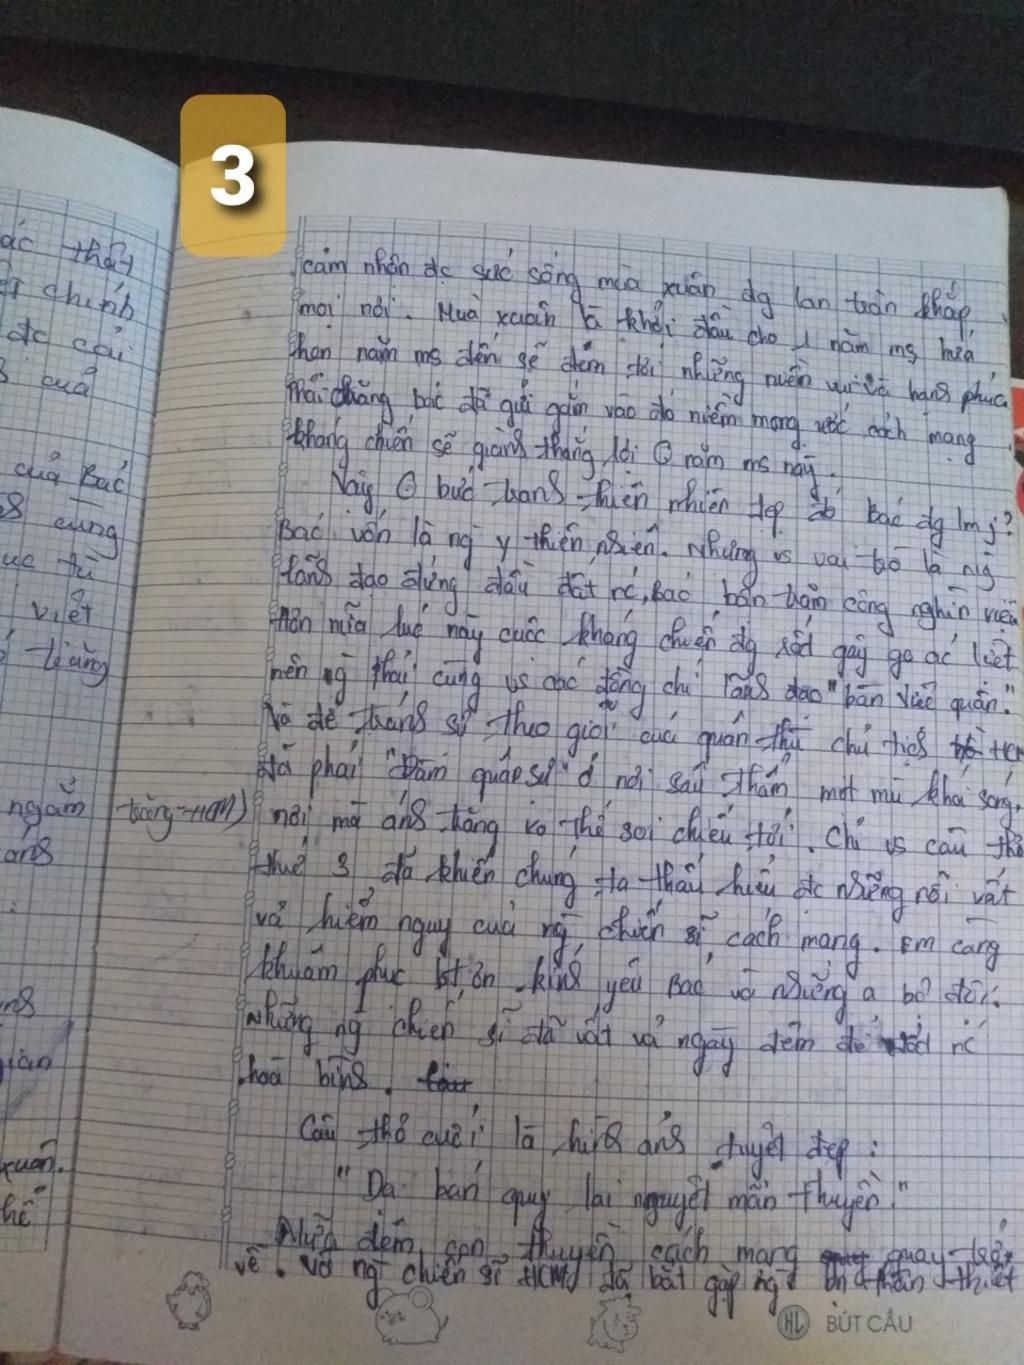 3
cảm nhận đc sức sống mùa xuân đg lan tràn khắp
mọi nơi. Muà xuân là khởi đầu cho 1 năm ms hứa
hẹn năm ms đến sẽ đem tới những niềm vui và hạnh phúc
Phải chăng bác đã gửi gắm vào đó niềm mong ước cách mạng
kháng chiến sẽ giành thắng lợi năm ms này.
Vậy bức tranh thiên nhiên đẹp đó Bác đg lm j?
Bác vốn là ng y thiên nhiên. Nhưng vs vai trò là ng
lãnh đạo đứng đầu đất nc, Bác bận trăm công nghìn việc
Hơn nữa lúc này cuộc kháng chiến đg rất gay go ác liệt
nên ng phải cùng vs các đồng chí lãnh đạo "bàn việc quân."
Và để tránh sự theo giõi của quân thù chủ tịch HCM
đã phải "Đàm quân sự" ở nơi sâu thẳm mịt mù khói sóng,
nơi mà ánh trăng ko thể soi chiếu tới. Chỉ vs câu thơ
thứ 3 đã khiến chúng ta thấu hiểu đc những nỗi vất
vả hiểm nguy của ng chiến sĩ cách mạng. Em càng
khuâm phục bt ơn kính yêu Bác và những a bộ đội.
Những ng chiến sĩ đã vất vả ngày đêm để nc
hoà bình.
Câu thơ cuối là hình ảnh tuyệt đẹp:
"Dạ bán quy lai nguyệt mãn thuyền."
Nửa đêm con thuyền cách mạng quay trở
về. Và ng chiến sĩ HCM đã bắt gặp ng bn thân thiết
ác thật
chính
đc cái
cuả
của Bác
cũng
viết
trăng
ngắm
ánh
xuân.
hế
HL BÚT CÂU